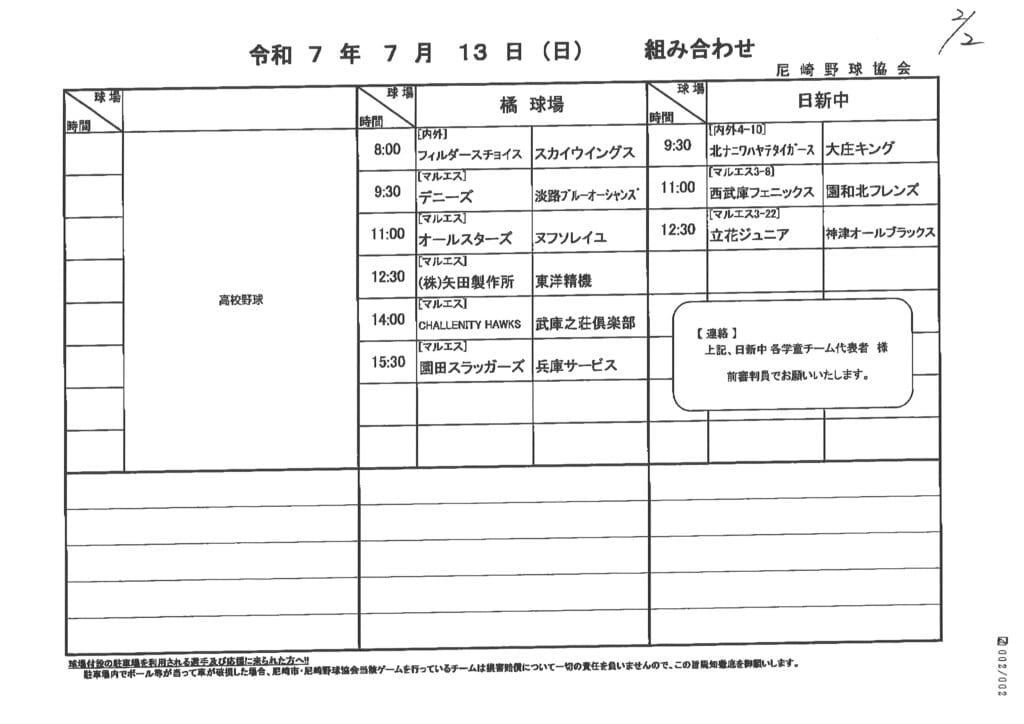 2/2
令和 7 年 7 月 13 日 (日) 組み合わせ
尼崎野球協会
球場
時間
高校野球
球場
時間
橘 球場
8:00
[内外]
フィルダースチョイス スカイウイングス
9:30
[マルエス]
デニーズ 淡路ブルーオーシャンズ
11:00
[マルエス]
オールスターズ ヌフソレイユ
12:30
[マルエス]
(株)矢田製作所 東洋精機
14:00
[マルエス]
CHALLENITY HAWKS 武庫之荘倶楽部
15:30
[マルエス]
園田スラッガーズ 兵庫サービス
球場
時間
日新中
9:30
[内外4-10]
北ナニワハヤテタイガース 大庄キング
11:00
[マルエス3-8]
西武庫フェニックス 園和北フレンズ
12:30
[マルエス3-22]
立花ジュニア 神津オールブラックス
【 連絡 】
上記、日新中 各学童チーム代表者 様
前審判員でお願いいたします。
球場付設の駐車場を利用される選手及び応援に来られた方へ!!
駐車場内でボール等が当って車が破損した場合、尼崎市・尼崎野球協会当験ゲームを行っているチームは損害賠償について一切の責任を負いませんので、この旨周知徹底を御願いします。
002/002